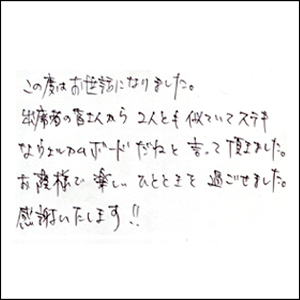 この度はお世話になりました。
出席者の皆さんから 2人とも似ていてステキ
なウェルカムボードだねと言って頂きました。
お蔭様で楽しいひとときを過ごせました。
感謝いたします!!